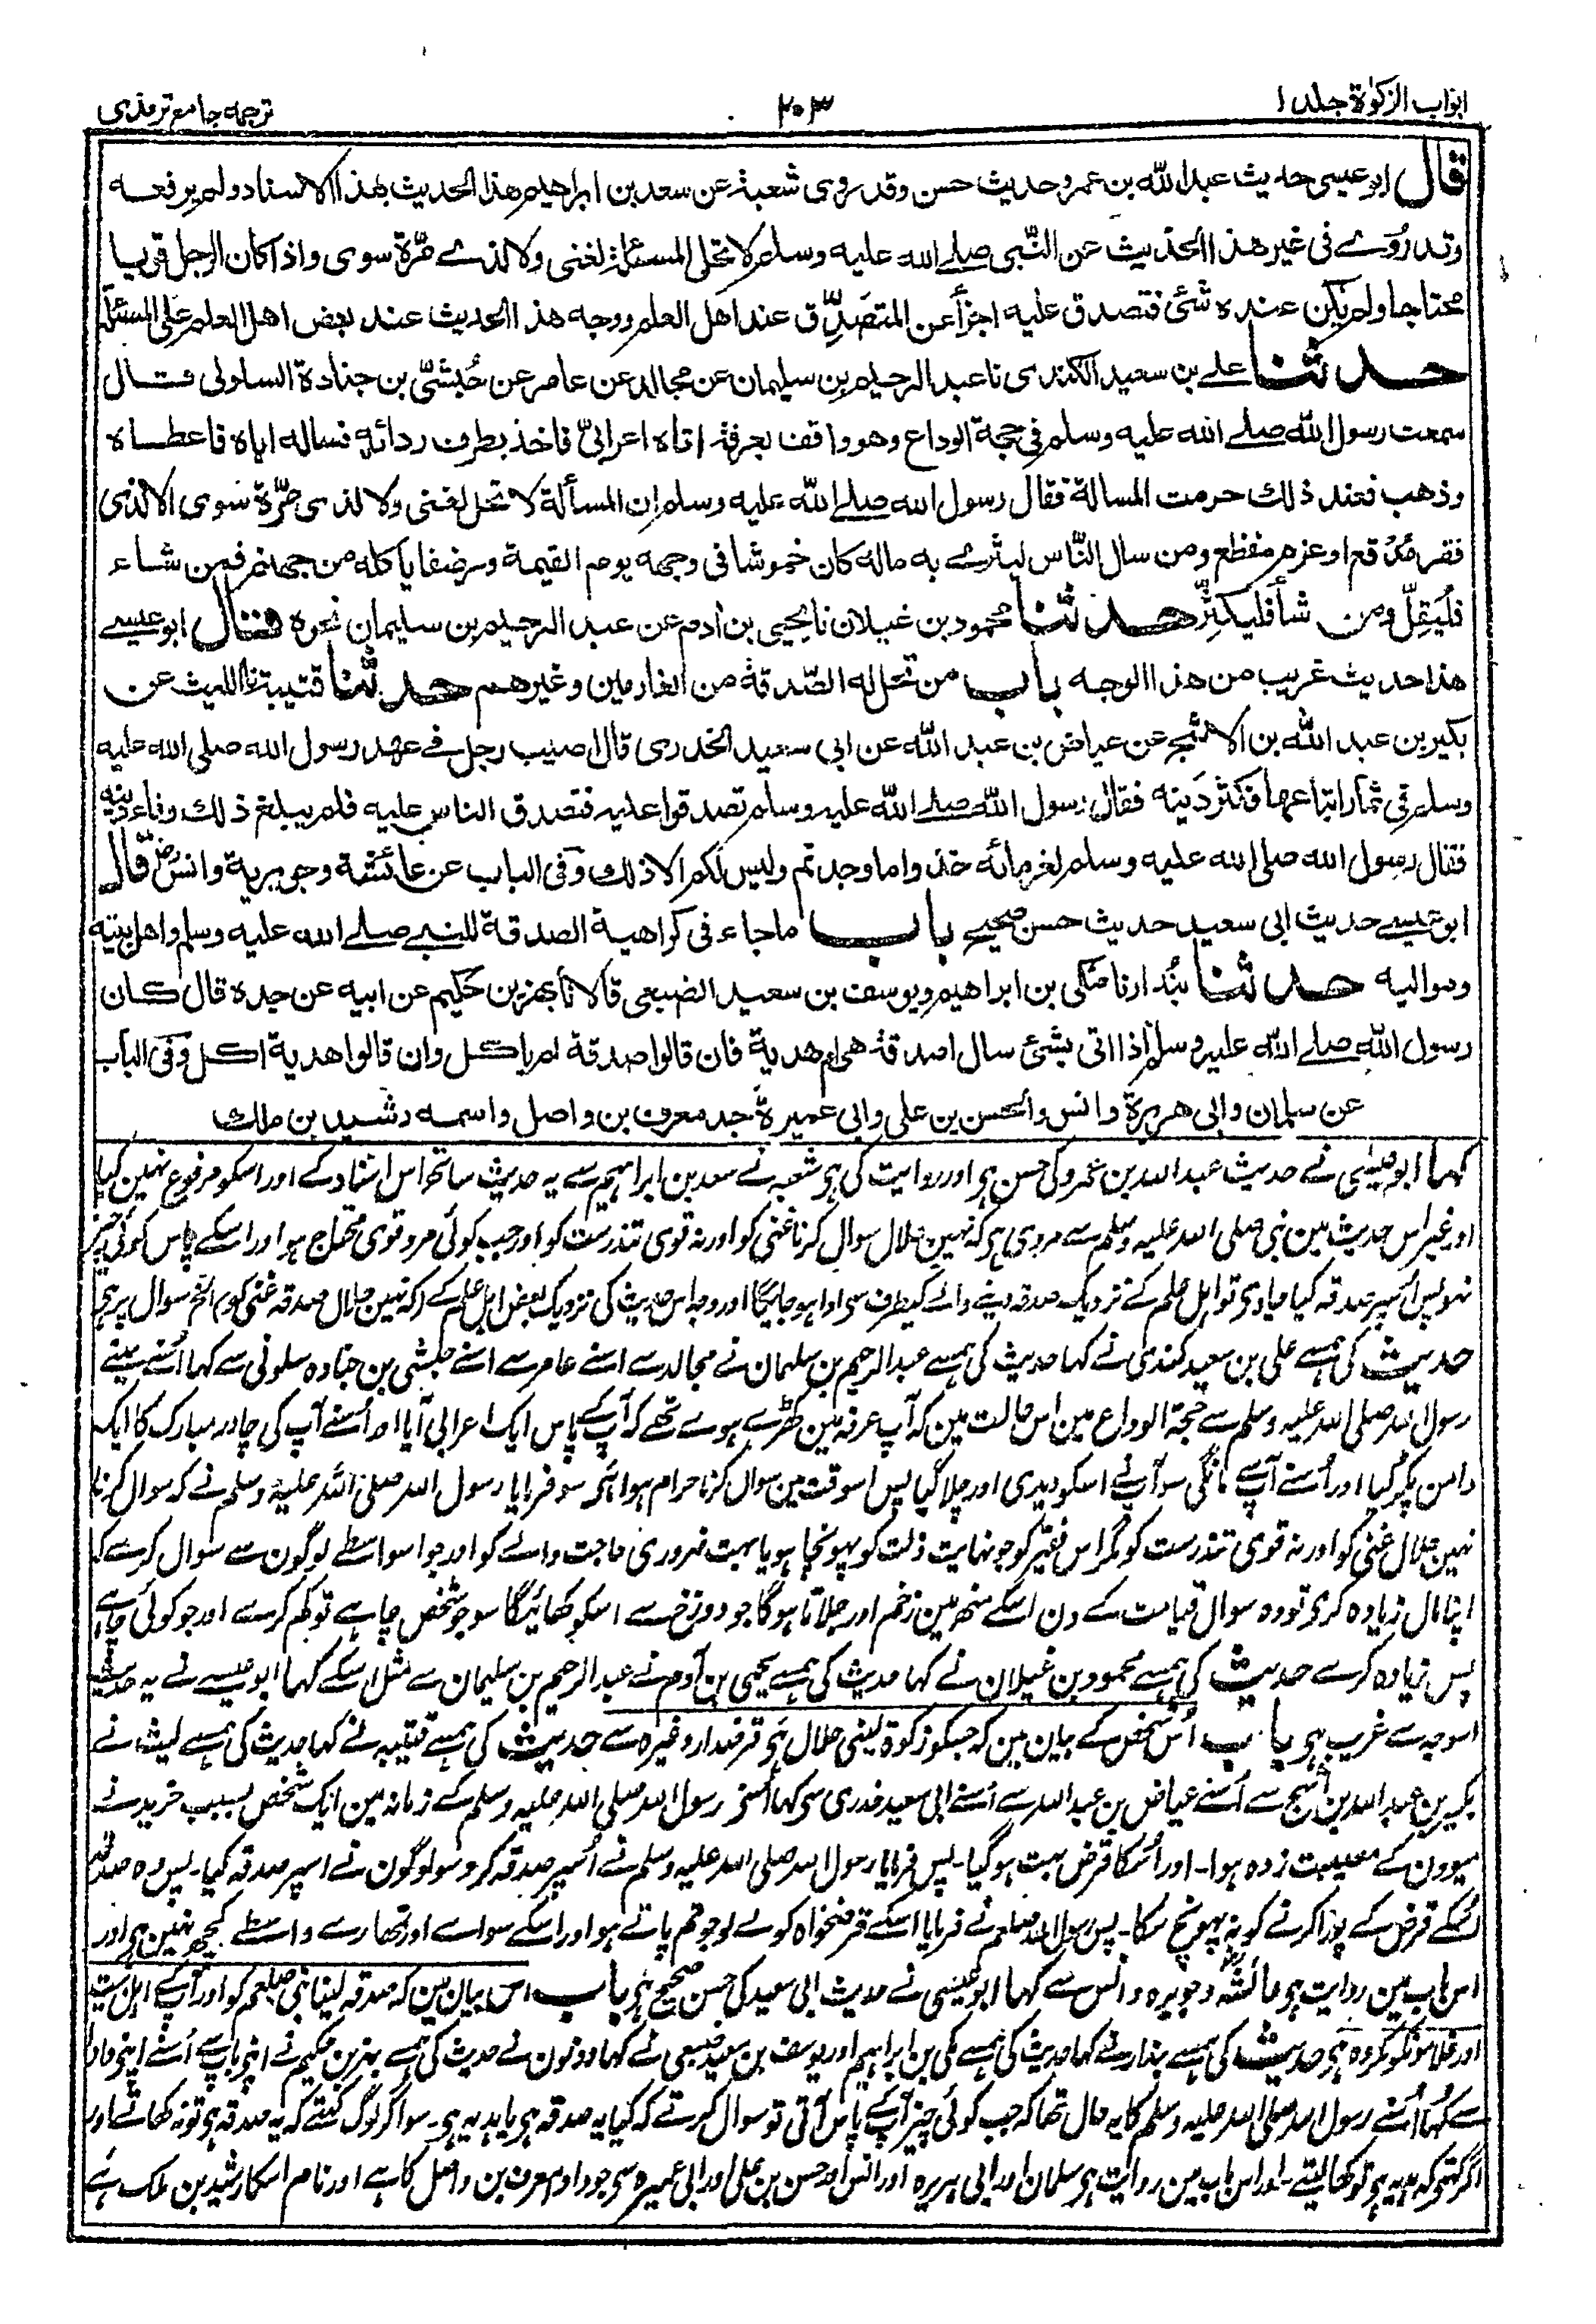 ابواب الزکوٰة جلد ۱
۲۰۳
ترجمه جامع ترمذی
قال ابو عیسی حدیث عبد الله بن عمرو حدیث حسن وقد روی شعبة عن سعد بن ابراهیم هذا الحدیث بهذا الاسناد ولم یرفعه
وقد رُوے فی غیر هذا الحدیث عن النّبی صلے الله علیه وسلم لا تحل المسئلة لغنی ولا لذے مرّة سوی واذا کان الرجل قویا
محتاجا ولم یکن عنده شئ فتصدق علیه اجزأ عن المتصدِّق عند اهل العلم ووجه هذا الحدیث عند بعض اهل العلم علی المسئلة
حدثنا علے بن سعید الکندی نا عبد الرحیم بن سلیمان عن مجالد عن عامر عن حُبشیّ بن جنادة السلولی قال
سمعت رسول الله صلے الله علیه وسلم فی حجة الوداع وهو واقف بعرفة اتاه اعرابیّ فاخذ بطرف ردائه فساله ایاه فاعطاه
وذهب فعند ذلك حرمت المسالة فقال رسول الله صلے الله علیه وسلم ان المسألة لا تحل لغنی ولا لذی مرّة سوی الا لذی
فقر مُدْقع او غرم مفظع ومن سال النّاس لیثرے به ماله کان خموشا فی وجهه یوم القیمة ورضفا یاکله من جهنم فمن شاء
فلیُقِلّ ومن شأ فلیکثِر حدثنا محمود بن غیلان نا یحیی بن ادم عن عبد الرحیم بن سلیمان نحوه قال ابو عیسے
هذا حدیث غریب من هذا الوجه باب من تحل له الصّدقة من الغارمین وغیرهم حدثنا قتیبة نا اللیث عن
بکیر بن عبد الله بن الاشج عن عیاض بن عبد الله عن ابی سعید الخدری قال اصیب رجل فے عهد رسول الله صلی الله علیه
وسلم فی ثمار ابتاعها فکثر دَینه فقال رسول الله صلے الله علیه وسلم تصدقوا علیه فتصدق الناس علیه فلم یبلغ ذلك وفاء دینه
فقال رسول الله صلی الله علیه وسلم لغرمائه خذوا ما وجدتم ولیس لکم الا ذلك وفی الباب عن عائشة وجویریة وانس قال
ابو عیسے حدیث ابی سعید حدیث حسن صحیح باب ما جاء فی کراهیة الصدقة للنبے صلے الله علیه وسلم واهل بیته
وموالیه حدثنا بُندار نا مکی بن ابراهیم ویوسف بن سعید الضبعی قالا نا بهز بن حکیم عن ابیه عن جده قال کان
رسول الله صلے الله علیه وسلم اذا اتی بشئ سال اصدقة هی ام هدیة فان قالوا صدقة لم یاکل وان قالوا هدیة اکل وفی الباب
عن سلمان وابی هریرة وانس والحسن بن علی وابی عمیرة جد معرف بن واصل واسمه رشید بن ملك
کہا ابو عیسی نے حدیث عبد اللہ بن عمرو کی حسن ہی اور روایت کی ہی شعبہ نے سعد بن ابراہیم سے یہ حدیث ساتھ اس اسناد کے اور اسکو مرفوع نہین کیا
اور غیر اس حدیث مین نبی صلی اللہ علیہ وسلم سے مروی ہی کہ نہین حلال سوال کرنا غنی کو اور نہ قوی تندرست کو اور جب کوئی مرد قوی محتاج ہو اور اسکے پاس کوئی چیز
نہو پس اُسپر صدقہ کیا جاوی تو اہل علم کے نزدیک صدقہ دینے والے کیطرف سی ادا ہو جائیگا اور وجہ اس حدیث کی نزدیک بعض اہل علم کے سوال پر ہی
حدیث کی ہمسے علی بن سعید کندی نے کہا حدیث کی ہمسے عبد الرحیم بن سلیمان نے مجالد سے اسنے عامر سے اسنے حبشی بن جنادہ سلولی سے کہا اُسنے سینے
رسول اللہ صلی اللہ علیہ وسلم سے حجة الوداع مین اس حالت مین کہ آپ عرفہ مین کھڑے ہوے تھے کہ آپ کے پاس ایک اعرابی آیا اور اُسنے آپ کی چادر مبارک کا ایک
دامن پکڑ لیا اور اُسنے آپ سے مانگی سو آپ نے اسکو دیدی اور چلا گیا پس اسوقت مین سوال کرنا حرام ہوا ہی سو فرمایا رسول اللہ صلی اللہ علیہ وسلم نے کہ سوال کرنا
نہین حلال غنی کو اور نہ قوی تندرست کو مگر اس فقیر کو جو نہایت ذلت کو پہونچا ہو یا بہت ضروری حاجت والے کو اور جو اسواسطے لوگون سے سوال کرے کہ
اپنا مال زیادہ کری تو وہ سوال قیامت کے دن اسکے منھ مین زخم اور جلاتا ہوگا جو دوزخ سے اسکو کھائیگا سو جو شخص چاہے تو کم کرے اور جو کوئی چاہے
پس زیادہ کرے حدیث کی ہمسے محمود بن غیلان نے کہا حدیث کی ہمسے یحیی بن آدم نے عبد الرحیم بن سلیمان سے مثل اسکے کہا ابو عیسے نے یہ حدیث
اسوجہ سے غریب ہی باب اُس شخص کے بیان مین کہ جسکو زکوة لینی حلال ہی قرضدار وغیرہ سے حدیث کی ہمسے قتیبہ نے کہا حدیث کی ہمسے لیث نے
بکیر بن عبد اللہ بن اشج سے اُسنے عیاض بن عبد اللہ سے اُسنے ابی سعید خدری سی کہا اُسنے رسول اللہ صلی اللہ علیہ وسلم کے زمانہ مین ایک شخص بسبب خریدنے
میوون کے مصیبت زدہ ہوا۔ اور اُسکا قرض بہت ہو گیا۔ پس فرمایا رسول اللہ صلی اللہ علیہ وسلم نے اُسپر صدقہ کرو سو لوگون نے اسپر صدقہ کیا۔ پس وہ صدقہ
اُسکے قرض کے پورا کرنے کو نہ پہونچ سکا۔ پس رسول اللہ صلعم نے فرمایا اسکے قرضخواہ کو لے لو جو تم پاتے ہو اور اسکے سواے اور تمھارے واسطے کچھ نہین ہی اور
اس باب مین روایت ہی عائشہ و جویریہ و انس سے کہا ابو عیسی نے حدیث ابی سعید کی حسن صحیح ہی باب اس بیان مین کہ صدقہ لینا نبی صلعم کو اور آپ کے اہل بیت
اور غلامونکو مکروہ ہی حدیث کی ہمسے بندار نے کہا حدیث کی ہمسے مکی بن ابراہیم اور یوسف بن سعید ضبعی نے کہا دونون نے حدیث کی ہمسے بہز بن حکیم نے اپنے باپ سے اُسنے اپنے دادا
سے کہا اُسنے رسول اللہ صلی اللہ علیہ وسلم کا یہ حال تھا کہ جب کوئی چیز آپ کے پاس آتی تو سوال کرتے کہ کیا یہ صدقہ ہی یا ہدیہ ہی۔ سو اگر لوگ کہتے کہ یہ صدقہ ہی تو نہ کھاتے اور
اگر کہتے کہ ہدیہ ہی تو کھا لیتے۔ اور اس باب مین روایت ہی سلمان اور ابی ہریرہ اور انس اور حسن بن علی اور ابی عمیرہ سی جو دادا معرف بن واصل کا ہے اور نام اسکا رشید بن ملک ہے